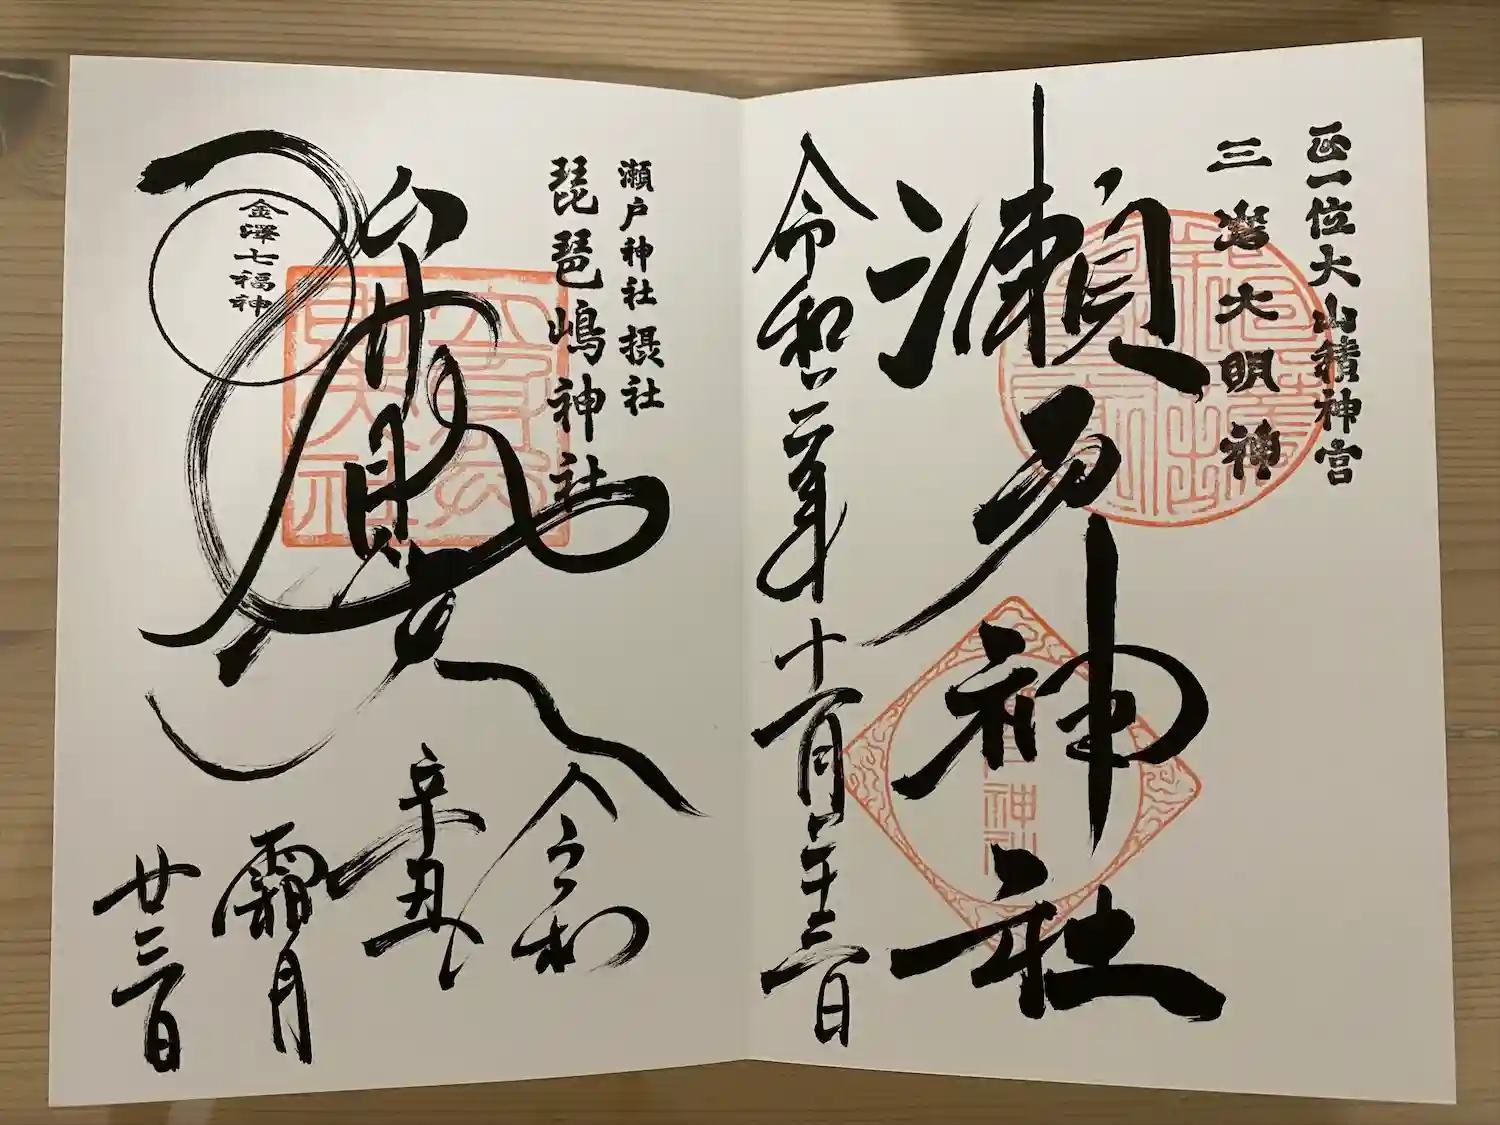 正一位大山積神宮
三島大明神
瀬戸神社
令和三年十一月二十三日
瀬戸神社摂社
琵琶嶋神社
金澤七福神
令和
辛丑
霜月
廿三日